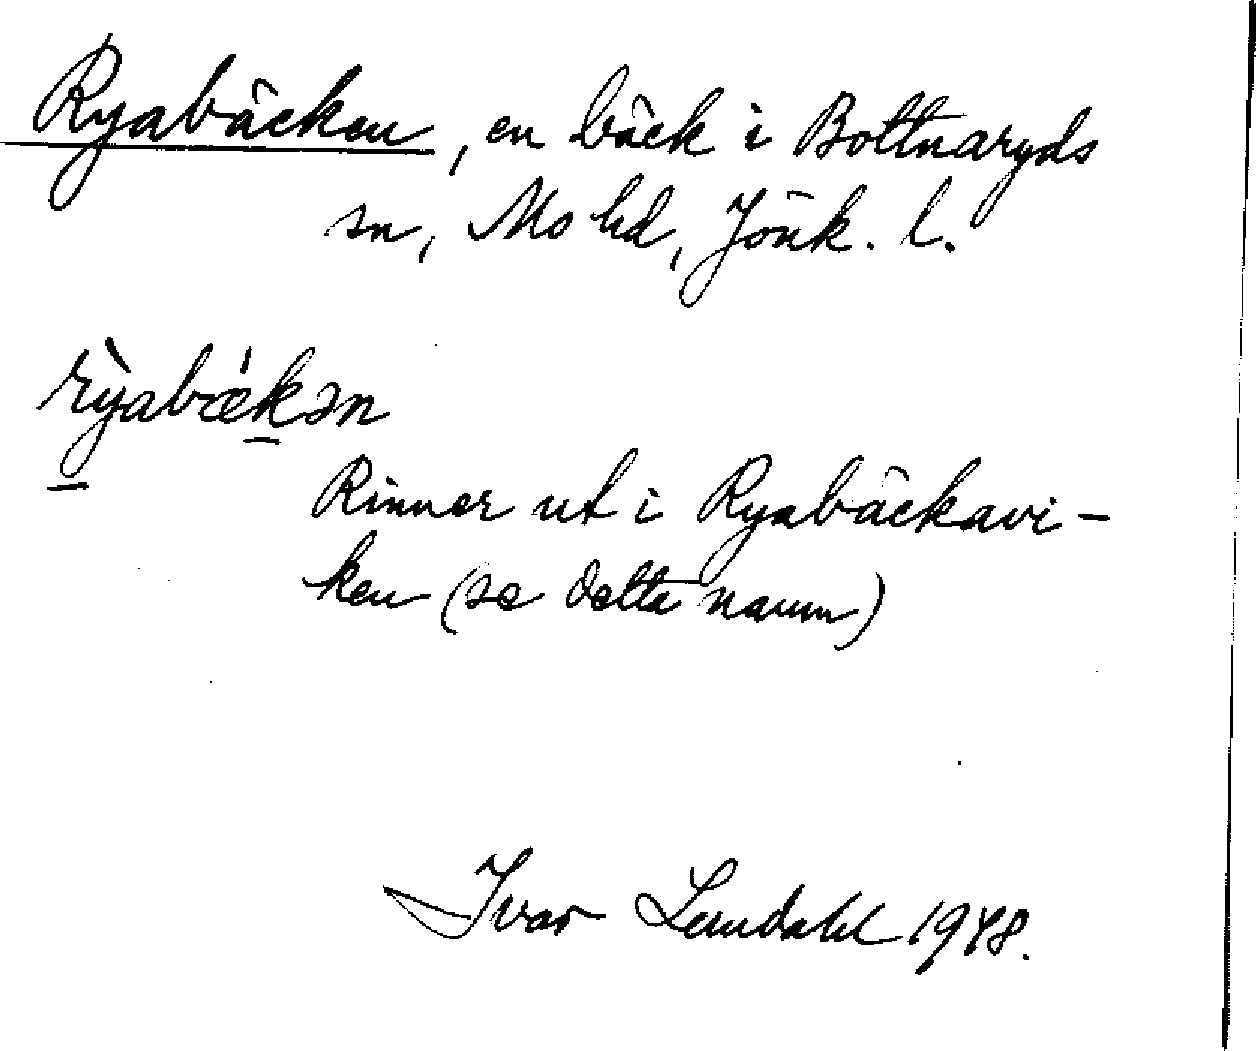 Ryabäcken, en bäck i Bottnaryds
sn, Mo hd, Jönk. l.
rỳabǽkən
Rinner ut i Ryabäckavi-
ken (se detta namn)
Ivar Lundahl 1948.